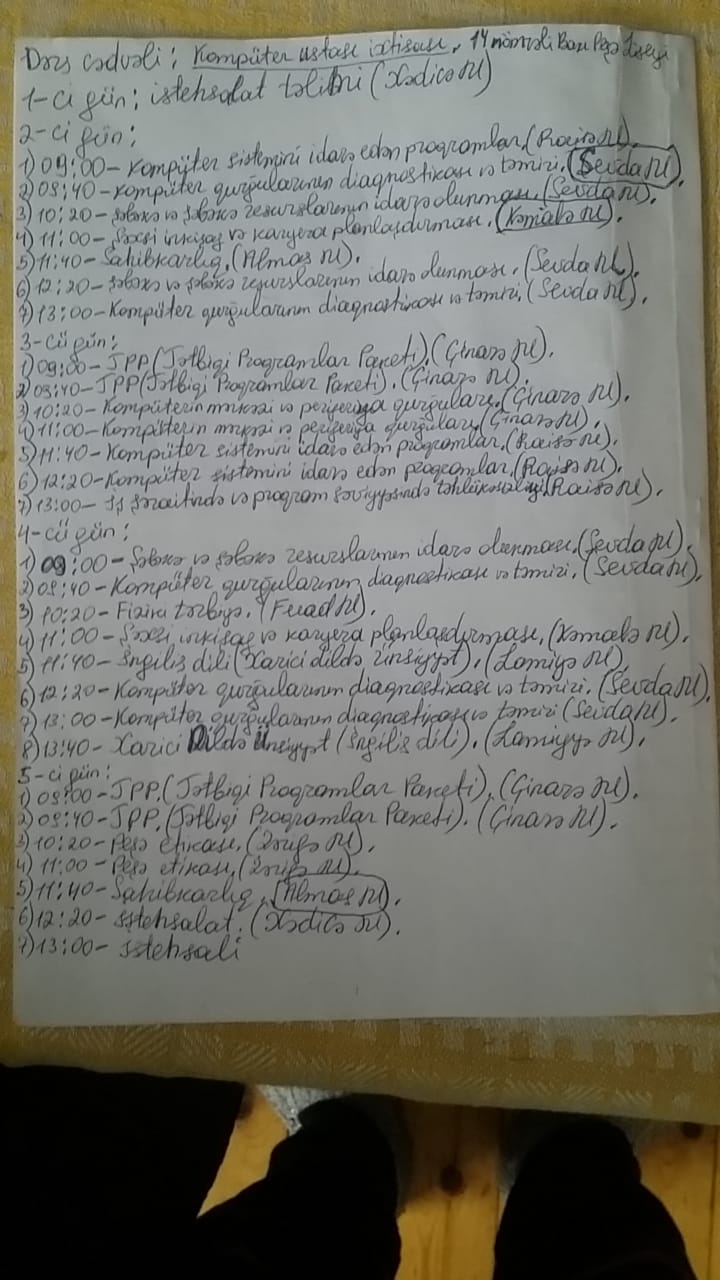 Dərs cədvəli: Kompüter ustası ixtisası, 14 nömrəli Bakı Peşə Liseyi
1-ci gün: istehsalat təlimi (Xədicə M)
2-ci gün:
1) 09:00 - Kompüter sistemini idarə edən proqramlar, (Raisə M).
2) 09:40 - Kompüter qurğularının diaqnostikası və təmiri, (Sevda M).
3) 10:20 - Şəbəkə və şəbəkə resurslarının idarə olunması, (Sevda M).
4) 11:00 - Şəxsi inkişaf və karyera planlaşdırması, (Kəmalə M).
5) 11:40 - Sahibkarlıq, (Almas M).
6) 12:20 - Şəbəkə və şəbəkə resurslarının idarə olunması, (Sevda M).
7) 13:00 - Kompüter qurğularının diaqnostikası və təmiri, (Sevda M).
3-cü gün:
1) 09:00 - TPP (Tətbiqi Proqramlar Paketi), (Çinarə M).
2) 09:40 - TPP (Tətbiqi Proqramlar Paketi), (Çinarə M).
3) 10:20 - Kompüterin mərkəzi və periferiya qurğuları, (Çinarə M).
4) 11:00 - Kompüterin mərkəzi və periferiya qurğuları, (Çinarə M).
5) 11:40 - Kompüter sistemini idarə edən proqramlar, (Raisə M).
6) 12:20 - Kompüter sistemini idarə edən proqramlar, (Raisə M).
7) 13:00 - İş şəraitində və proqram səviyyəsində təhlükəsizliyi, (Raisə M).
4-cü gün:
1) 09:00 - Şəbəkə və şəbəkə resurslarının idarə olunması, (Sevda M).
2) 09:40 - Kompüter qurğularının diaqnostikası və təmiri, (Sevda M).
3) 10:20 - Fiziki tərbiyə, (Fuad M).
4) 11:00 - Şəxsi inkişaf və karyera planlaşdırması, (Kəmalə M).
5) 11:40 - İngilis dili (Xarici dildə ünsiyyət), (Lamiyə M).
6) 12:20 - Kompüter qurğularının diaqnostikası və təmiri, (Sevda M).
7) 13:00 - Kompüter qurğularının diaqnostikası və təmiri (Sevda M).
8) 13:40 - Xarici Dildə Ünsiyyət (İngilis dili), (Lamiyyə M).
5-ci gün:
1) 09:00 - TPP, (Tətbiqi Proqramlar Paketi), (Çinarə M).
2) 09:40 - TPP, (Tətbiqi Proqramlar Paketi), (Çinarə M).
3) 10:20 - Peşə etikası, (Zərifə M),
4) 11:00 - Peşə etikası, (Zərifə M).
5) 11:40 - Sahibkarlıq, (Almas M).
6) 12:20 - İstehsalat, (Xədicə M).
7) 13:00 - İstehsali